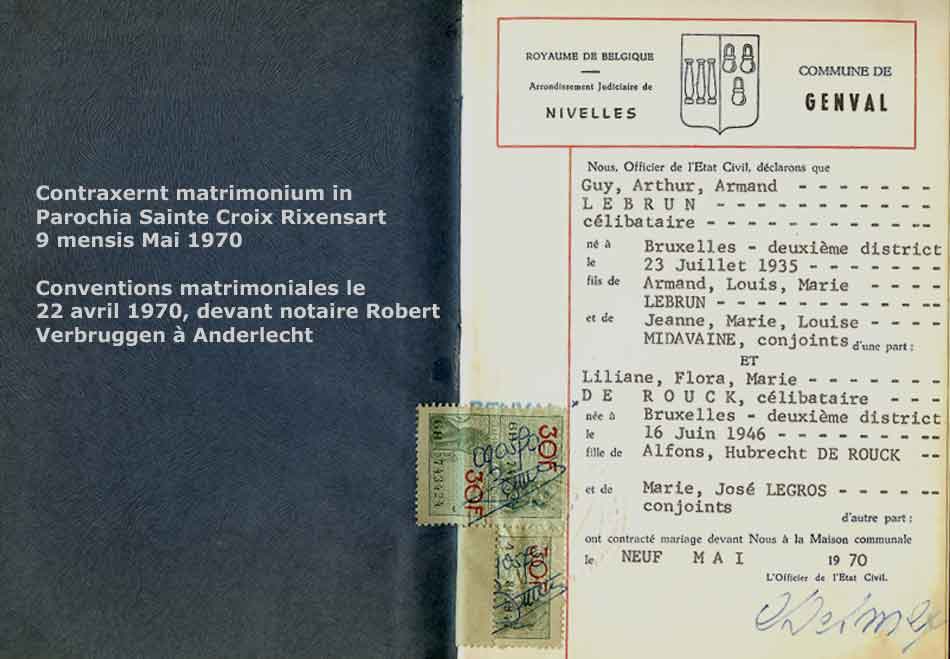 Contraxernt matrimonium in
Parochia Sainte Croix Rixensart
9 mensis Mai 1970
Conventions matrimoniales le
22 avril 1970, devant notaire Robert
Verbruggen à Anderlecht
ROYAUME DE BELGIQUE
Arrondissement Judiciaire de
NIVELLES
COMMUNE DE
GENVAL
Nous, Officier de l'Etat Civil, déclarons que
Guy, Arthur, Armand - - - - - - -
L E B R U N - - - - - - - - - - -
célibataire - - - - - - - - - - --
né à Bruxelles - deuxième district
le 23 Juillet 1935 - - - - - - -
fils de Armand, Louis, Marie - - - -
LEBRUN - - - - - - - - - - - -
et de Jeanne, Marie, Louise - - - -
MIDAVAINE, conjoints d'une part ;
ET
Liliane, Flora, Marie - - - - - - -
D E R O U C K, célibataire - - --
née à Bruxelles - deuxième district
le 16 Juin 1946 - - - - - - - - -
fille de Alfons, Hubrecht DE ROUCK --
et de Marie, José LEGROS - - - - --
conjoints
d'autre part ;
ont contracté mariage devant Nous à la Maison communale
le NEUF M A I 19 70
L'Officier de l'Etat Civil.
30F
30F
30F